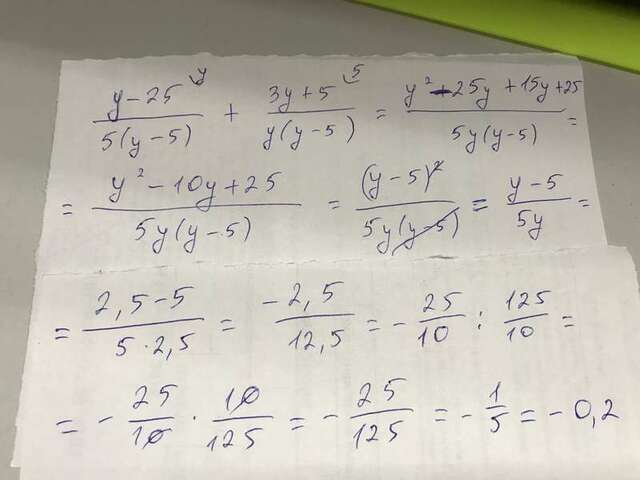 (y-25)^y/(5(y-5)) + (3y+5)^5/(y(y-5)) = (y²-25y+15y+25)/(5y(y-5)) =
= (y²-10y+25)/(5y(y-5)) = (y-5)²/(5y(y-5)) = (y-5)/(5y) =
= (2,5-5)/(5·2,5) = (-2,5)/(12,5) = -25/10 : 125/10 =
= -25/10 · 10/125 = -25/125 = -1/5 = -0,2